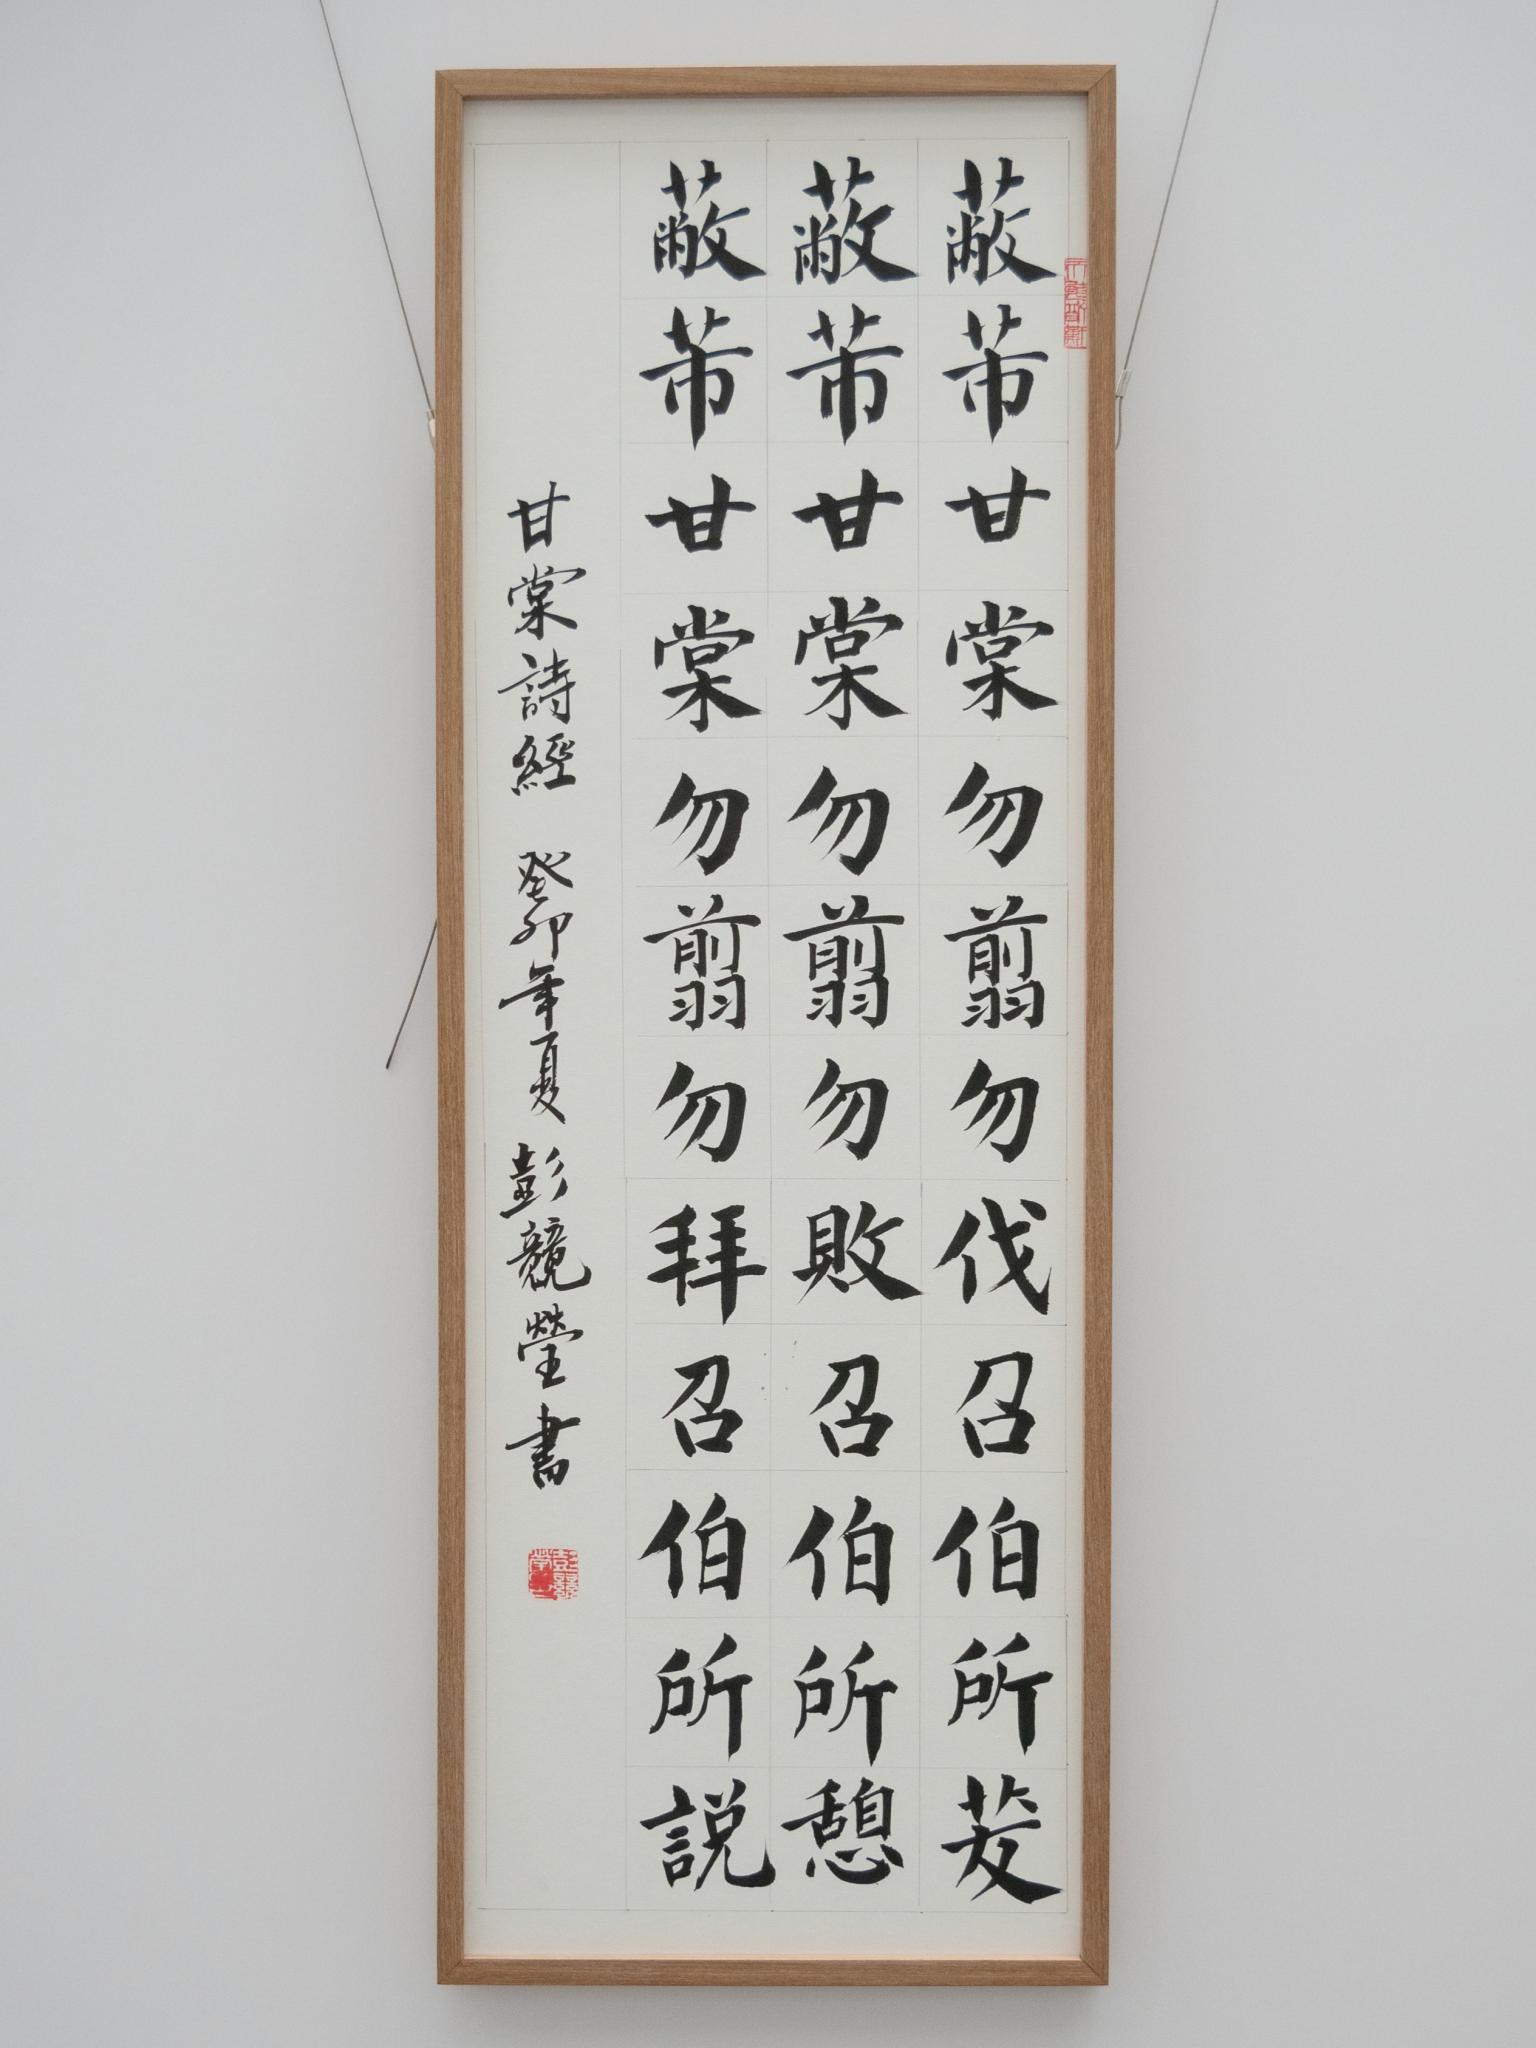 蔽芾甘棠勿翦勿伐召伯所茇
蔽芾甘棠勿翦勿敗召伯所憩
蔽芾甘棠勿翦勿拜召伯所説
甘棠詩經 癸卯年夏 彭競瑩書